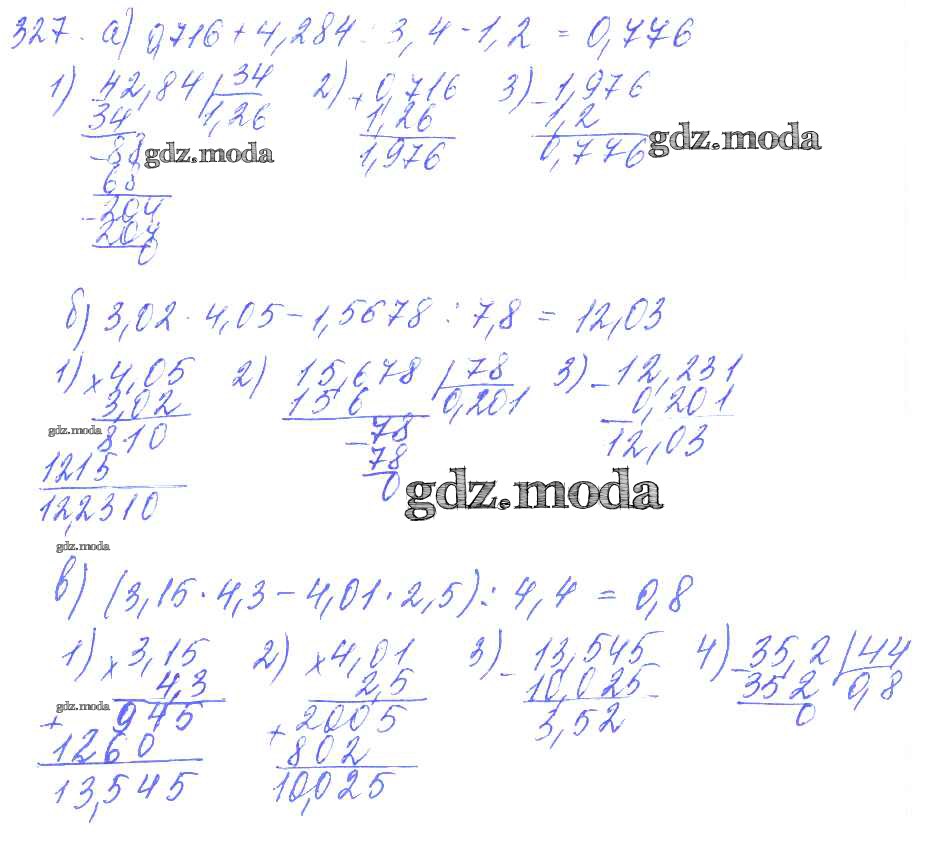 327. а) 0,716 + 4,284 : 3,4 - 1,2 = 0,776
1) 42,84 34 2) + 0,716 3) - 1,976
34 1,26 1,26 1,2
- 88 gdz.moda 1,976 0,776 gdz.moda
68
- 204
204
0
б) 3,02 · 4,05 - 1,5678 : 7,8 = 12,03
1) × 4,05 2) 15,678 78 3) - 12,231
3,02 156 0,201 0,201
gdz.moda 810 - 78 12,03
1215 78
12,2310 0 gdz.moda
gdz.moda
в) (3,15 · 4,3 - 4,01 · 2,5) : 4,4 = 0,8
1) × 3,15 2) × 4,01 3) - 13,545 4) - 35,2 44
4,3 2,5 10,025 352 0,8
gdz.moda + 945 + 2005 3,52 0
1260 802
13,545 10,025